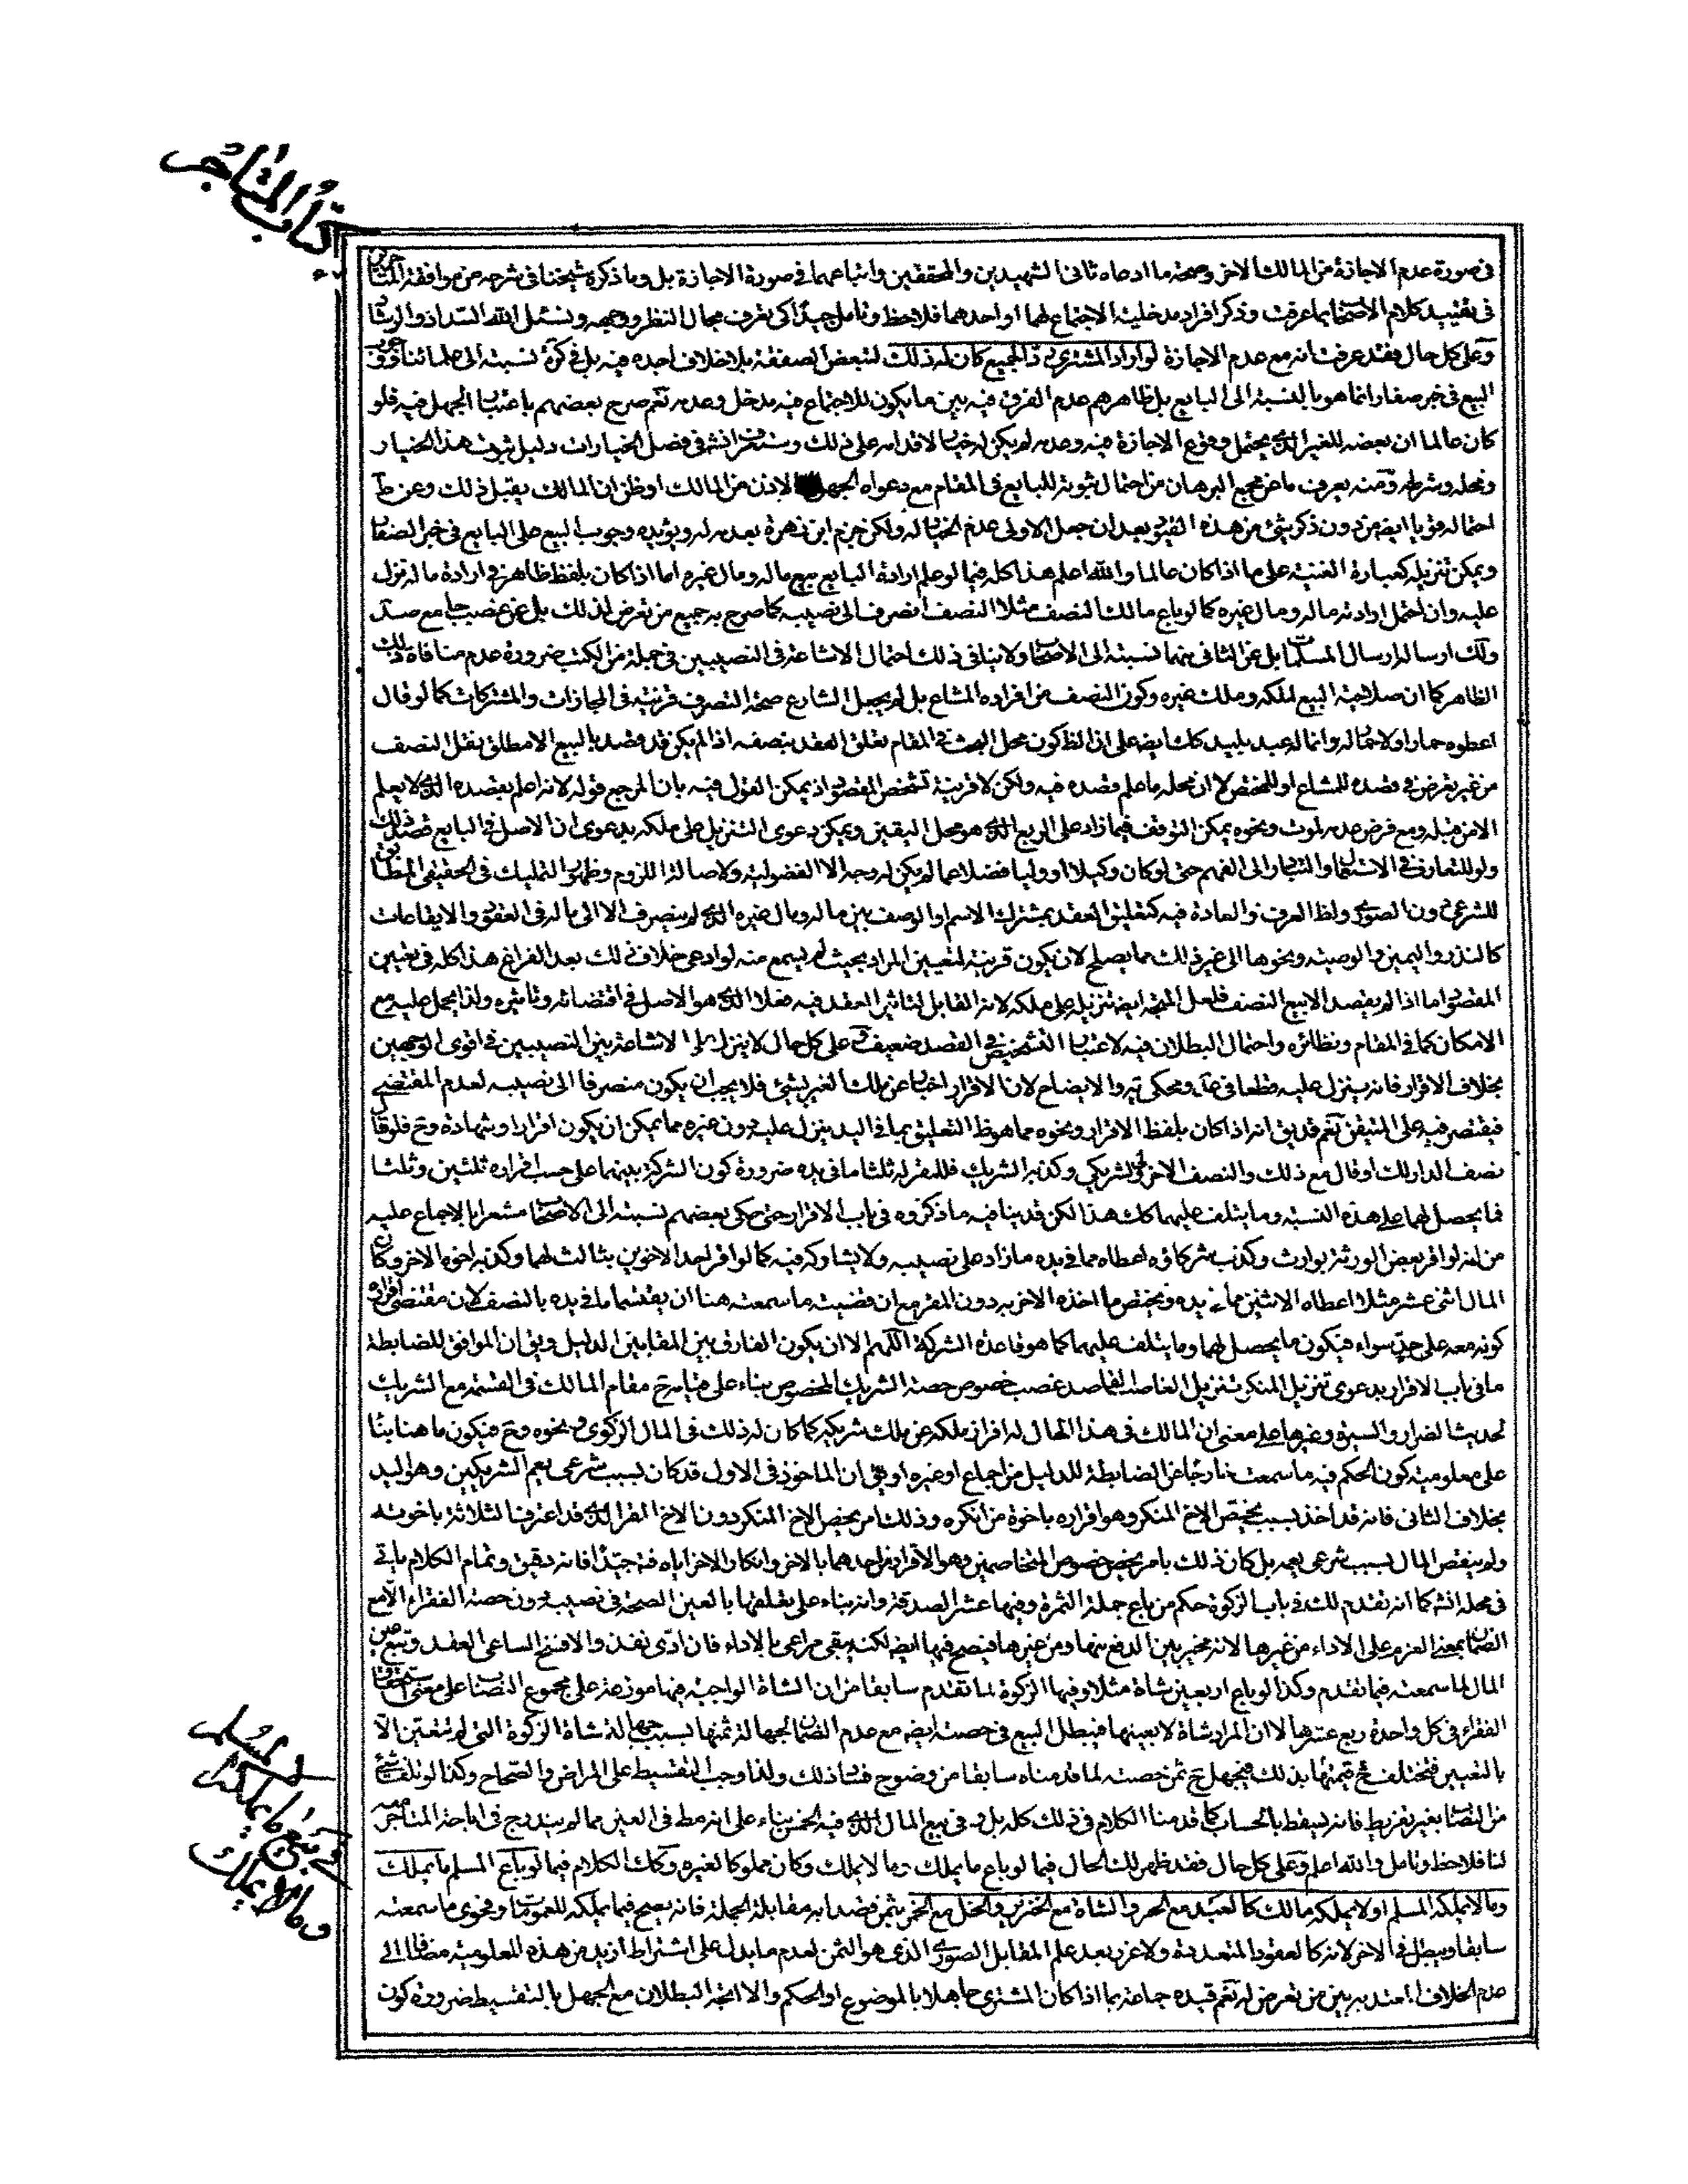 كتاب المتاجر
في صورة عدم الاجازة من المالك الاخر وصحة ما ادعاه ثاني الشهيدين والمحققين واتباعهما في صورة الاجازة بل وما ذكره شيخنا في شرحه من موافقة المتاخرين
في تقييد كلام الاصحاب بما عرفت وذكر افراد مدخلية الاجتماع لهما او احدهما فلاحظ وتامل جيدا كي تعرف مجال النظر ووجهه ونسئل الله السداد والرشاد
وعلى كل حال فقد عرفت انه مع عدم الاجازة لو اراد المشتري رد الجميع كان له ذلك لتبعض الصفقة بلا خلاف اجده فيه بل في كرة نسبته الى علمائنا
البيع في خبر صفار انما هو بالنسبة الى البايع بل ظاهرهم عدم الفرق فيه بين ما يكون للاجتماع فيه مدخل وعدمه نعم صرح بعضهم باعتبار الجهل فيه فلو
كان عالما ان بعضه للغير الذي يحتمل وقوع الاجازة منه وعدمه لم يكن له خيار لاقدامه على ذلك وستعرف انش في فصل الخيارات دليل ثبوت هذا الخيار
ومحله وشرطه ومنه يعرف ما عن مجمع البرهان من احتمال ثبوته للبايع في المقام مع دعواه الجهل الاذن من المالك او ظن ان المالك يقبل ذلك وعن ط
احتماله قويا ايضا من دون ذكر شئ من هذه القيود بعد ان جعل الاولى عدم الخيار له ولكن جزم ابن زهرة بعدمه له ويؤيده وجوب البيع على البايع في خبر الصفار
ويمكن تنزيله كعبارة الغنية على ما اذا كان عالما والله اعلم هذا كله فيما لو علم ارادة البايع بيع ماله ومال غيره اما اذا كان بلفظ ظاهر في ارادة ماله نزل
عليه وان احتمل ارادته ماله ومال غيره كما لو باع مالك النصف مثلا النصف انصرف الى نصيبه كما صرح به جميع من تعرض لذلك بل عن غصب جامع صد
ولك ارساله ارسال المسلمات بل عن الثاني منهما نسبته الى الاصحاب ولا ينافي ذلك احتمال الاشاعة في النصيبين في جملة من الكتب ضرورة عدم منافاة ذلك
الظاهر كما ان صلاحية البيع لملكه وملك غيره وكون النصف من افراده المشاع بل لم يجعل الشارع صحة التصرف قرينة في المجازات والمشتركات كما لو قال
اعطوه حمارا ولا حمار له وانما له عبد بليد كان ايضا على ان الظ كون محل البحث في المقام تعلق العقد بنصفه اذا لم يكن قد قصد بالبيع الا مطلق نقل النصف
من غير تعرض في قصده للمشاع او للمختص لا ان محله ما علم قصده فيه ولكن لا قرينة تشخص المقصود اذ يمكن القول فيه بان المرجع قوله لانه اعلم بقصده الذي لا يعلم
الا من قبله ومع فرض عدمه لموت ونحوه يمكن التوقف فيما زاد على الربع الذي هو محل اليقين ويمكن دعوى التنزيل على ملكه بدعوى ان الاصل في البايع قصد ذلك
ولو للتعارف في الاستعمال والتبادر الى الفهم حتى لو كان وكيلا او وليا فضلا عما لم يكن له وجه الا الفضولية ولاصالة اللزوم وظهور التمليك في الحقيقي المطابق
للشرعي دون الصوري ولظ العرف والعادة فيه كتعليق العقد بمشترك الاسم او الوصف بين ماله ومال غيره الذي لم ينصرف الا الى ماله في العقود والايقاعات
كالنذر واليمين والوصية ونحوها الى غير ذلك مما يصلح لان يكون قرينة لتعيين المراد بحيث لم يسمع منه لو ادعى خلاف ذلك بعد الفراغ هذا كله في تعيين
المقصود اما اذا لم يقصد الا بيع النصف فلعل المتجه ايضا تنزيله على ملكه لانه القابل لتاثير العقد فيه فعلا الذي هو الاصل في اقتضائه وتاثيره ولذا يحمل عليه مع
الامكان كما في المقام ونظائره واحتمال البطلان فيه لاعتبار التشخيص في القصد ضعيف وعلى كل حال لا ينزل على الاشاعة بين النصيبين في اقوى الوجهين
بخلاف الاقرار فانه ينزل عليه قطعا في عد ومحكي ير والايضاح لان الاقرار اخبار عن ملك الغير بشئ فلا يجب ان يكون منصرفا الى نصيبه لعدم المقتضي
فيقتصر فيه على المتيقن نعم قد يق انه اذا كان بلفظ الاقرار ونحوه مما هو ظ التعليق بما في اليد ينزل عليه دون غيره مما يمكن ان يكون اقرارا وشهادة وح فلو قال
نصف الدار لك او قال مع ذلك والنصف الاخر لي ولشريكي وكذبه الشريك فللمقر له ثلثا ما في يده ضرورة كون الشركة بينهما على حسب اقراره ثلثين وثلثا
فما يحصل لهما على هذه النسبة وما يتلف عليهما كك هذا لكن قد ينافيه ما ذكروه في باب الاقرار حتى حكى بعضهم نسبته الى الاصحاب مشعرا بالاجماع عليه
من انه لو اقر بعض الورثة بوارث وكذب شركاؤه اعطاه مما في يده ما زاد على نصيبه ولا يشاركه فيه كما لو اقر احد الاخوين بثالث لهما وكذبه اخوه الاخر وكان
المال اثني عشر مثلا اعطاه الاثنين مما في يده ويختص ما اخذه الاخر به دون المقر مع ان قضية ما سمعته هنا ان يقتسما ما في يده بالنصف لان مقتضى اقراره
كونه معه على حد سواء فيكون ما يحصل لهما وما يتلف عليهما كما هو قاعدة الشركة اللهم الا ان يكون الفارق بين المقامين الدليل ويق ان الموافق للضابطة
ما في باب الاقرار بدعوى تنزيل المنكر بمنزلة الغاصب القاصد غصب خصوص حصة الشريك المخصوص بناء على قيامه ح مقام المالك في القسمة مع الشريك
لحديث الضرار والسيرة وغيرها على معنى ان المالك في هذا الحال له افراز ملكه عن ملك شريكه كما كان له ذلك في المال الزكوي ونحوه وح فيكون ما هنا بناء
على معلومية كون الحكم فيه ما سمعت خارجا عن الضابطة للدليل من اجماع او غيره او يق ان الماخوذ في الاول قد كان بسبب شرعي يعم الشريكين وهو اليد
بخلاف الثاني فانه قد اخذ بسبب يختص الاخ المنكر وهو اقراره باخوة من انكره وذلك امر يخص الاخ المنكر دون الاخ المقر الذي قد اعترف الثلاثة باخوته
ولم ينقص المال بسبب شرعي يعمه بل كان ذلك بامر يخص خصوص المتخاصمين وهو الاقرار من احدهما بالاخر وانكار الاخر اياه فت جيدا فانه دقيق وتمام الكلام ياتي
في محله انش كما انه تقدم لك في باب الزكوة حكم من باع جملة الثمرة وفيها عشر الصدقة وانه بناء على تعلقها بالعين الصحة في نصيبه دون حصة الفقراء الا مع
الضمان بمعنى العزم على الاداء من غيرها لانه مخير بين الدفع منها ومن غيرها فيصح فيها ايضا لكنه يبقى مراعى بالاداء فان ادى نفذ والا فسخ الساعي العقد وتبع عين
المال لما سمعته فيما تقدم وكذا لو باع اربعين شاة مثلا وفيها الزكوة لما تقدم سابقا من ان الشاة الواجبة فيها موزعة على مجموع النصاب على معنى استحقاق
الفقراء في كل واحدة ربع عشرها لا ان المراد شاة لا بعينها فيبطل البيع في حصته ايضا مع عدم الضمان لجهالة ثمنها بسبب جهالة شاة الزكوة التي لم تتعين الا
بالتعيين فتختلف ح قيمتها بذلك فيجهل ح ثمن حصته لما قدمناه سابقا من وضوح فساد ذلك ولذا وجب التقسيط على المراض والصحاح وكذا لو تلف شئ
من النصاب بغير تفريط فانه يسقط بالحساب كما قدمنا الكلام في ذلك كله بل و في بيع المال الذي فيه الخمس بناء على انه مط في العين مما لم يندرج في اباحة المتاجر منه
لنا فلاحظ وتامل والله اعلم وعلى كل حال فقد ظهر لك الحال فيما لو باع ما يملك وما لا يملك وكان مملوكا لغيره وكك الكلام فيما لو باع المسلم ما يملك
وما لا يملكه المسلم او لا يملكه مالك كالعبد مع الحر والشاة مع الخنزير والخل مع الخمر بثمن قصد به مقابلة الجملة فانه يصح فيما يملكه للعمومات وفحوى ما سمعته
سابقا ويبطل في الاخر لانه كالعقود المتعددة ولا غرر بعد علم المقابل الصوري الذي هو الثمن لعدم ما يدل على اشتراط ازيد من هذه المعلومية مضافا الى
عدم الخلاف المعتد به بين من تعرض له نعم قيده جماعة بما اذا كان المشتري جاهلا بالموضوع او الحكم والا اتجه البطلان مع الجهل بالتقسيط ضرورة كون
في بيع ما يملكه المسلم
وما لا يملك